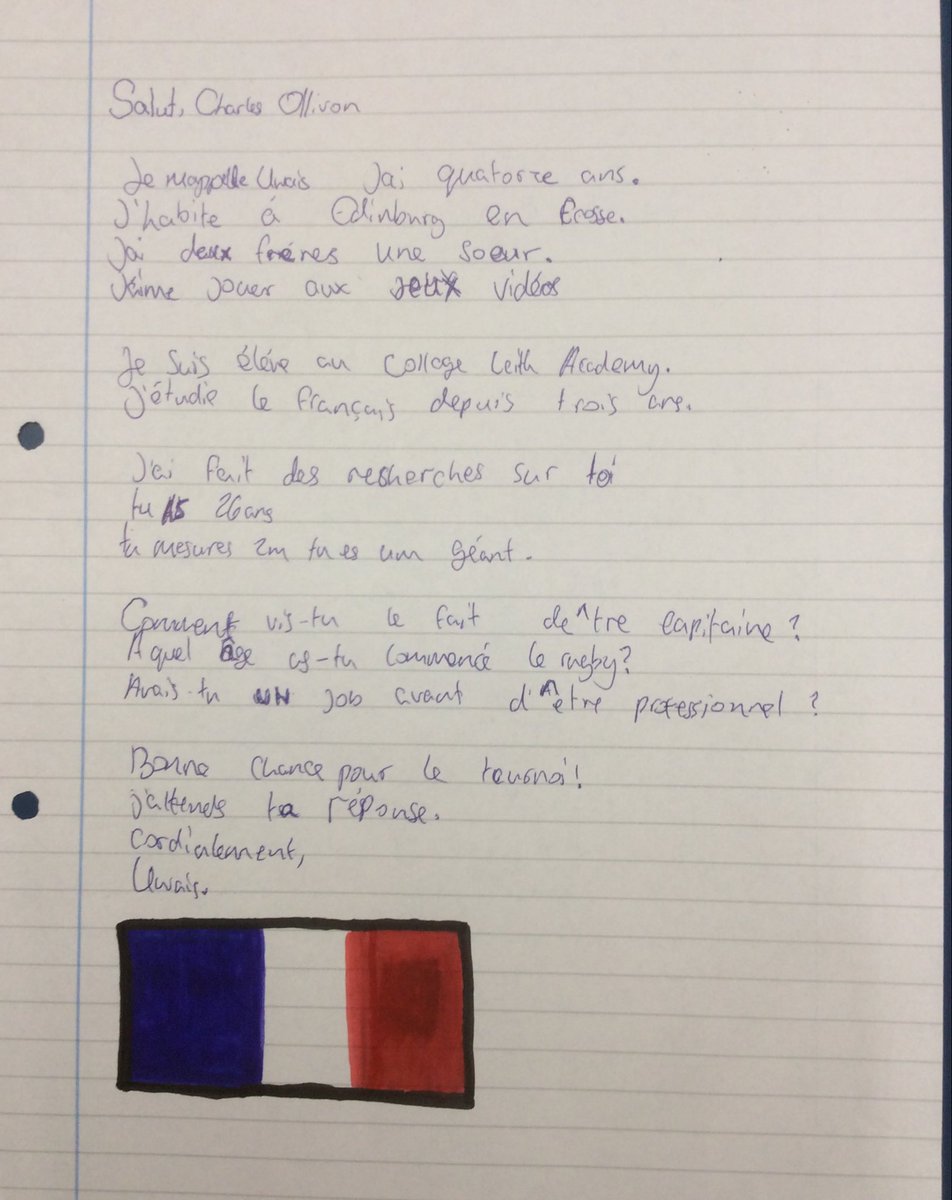 Salut, Charles Ollivon
Je mappelle Uwais Jai quatorze ans.
J'habite á Edinburg en Écosse.
Jai deux fréres une soeur.
J'aime jouer aux jeux vidéos
Je suis éléve au collage Leith Academy.
J'étudie le français depuis trois ans.
J'ai fait des resherches sur toi
tu as 26 ans
tu mesures 2m tu es um géant.
Comment vis-tu le fait de^tre capitaine?
A quel âge as-tu commencé le rugby?
Avais-tu un job avant d'être professionnel?
Bonne chance pour le tournoi!
j'attends ta réponse.
cordialement,
Uwais.